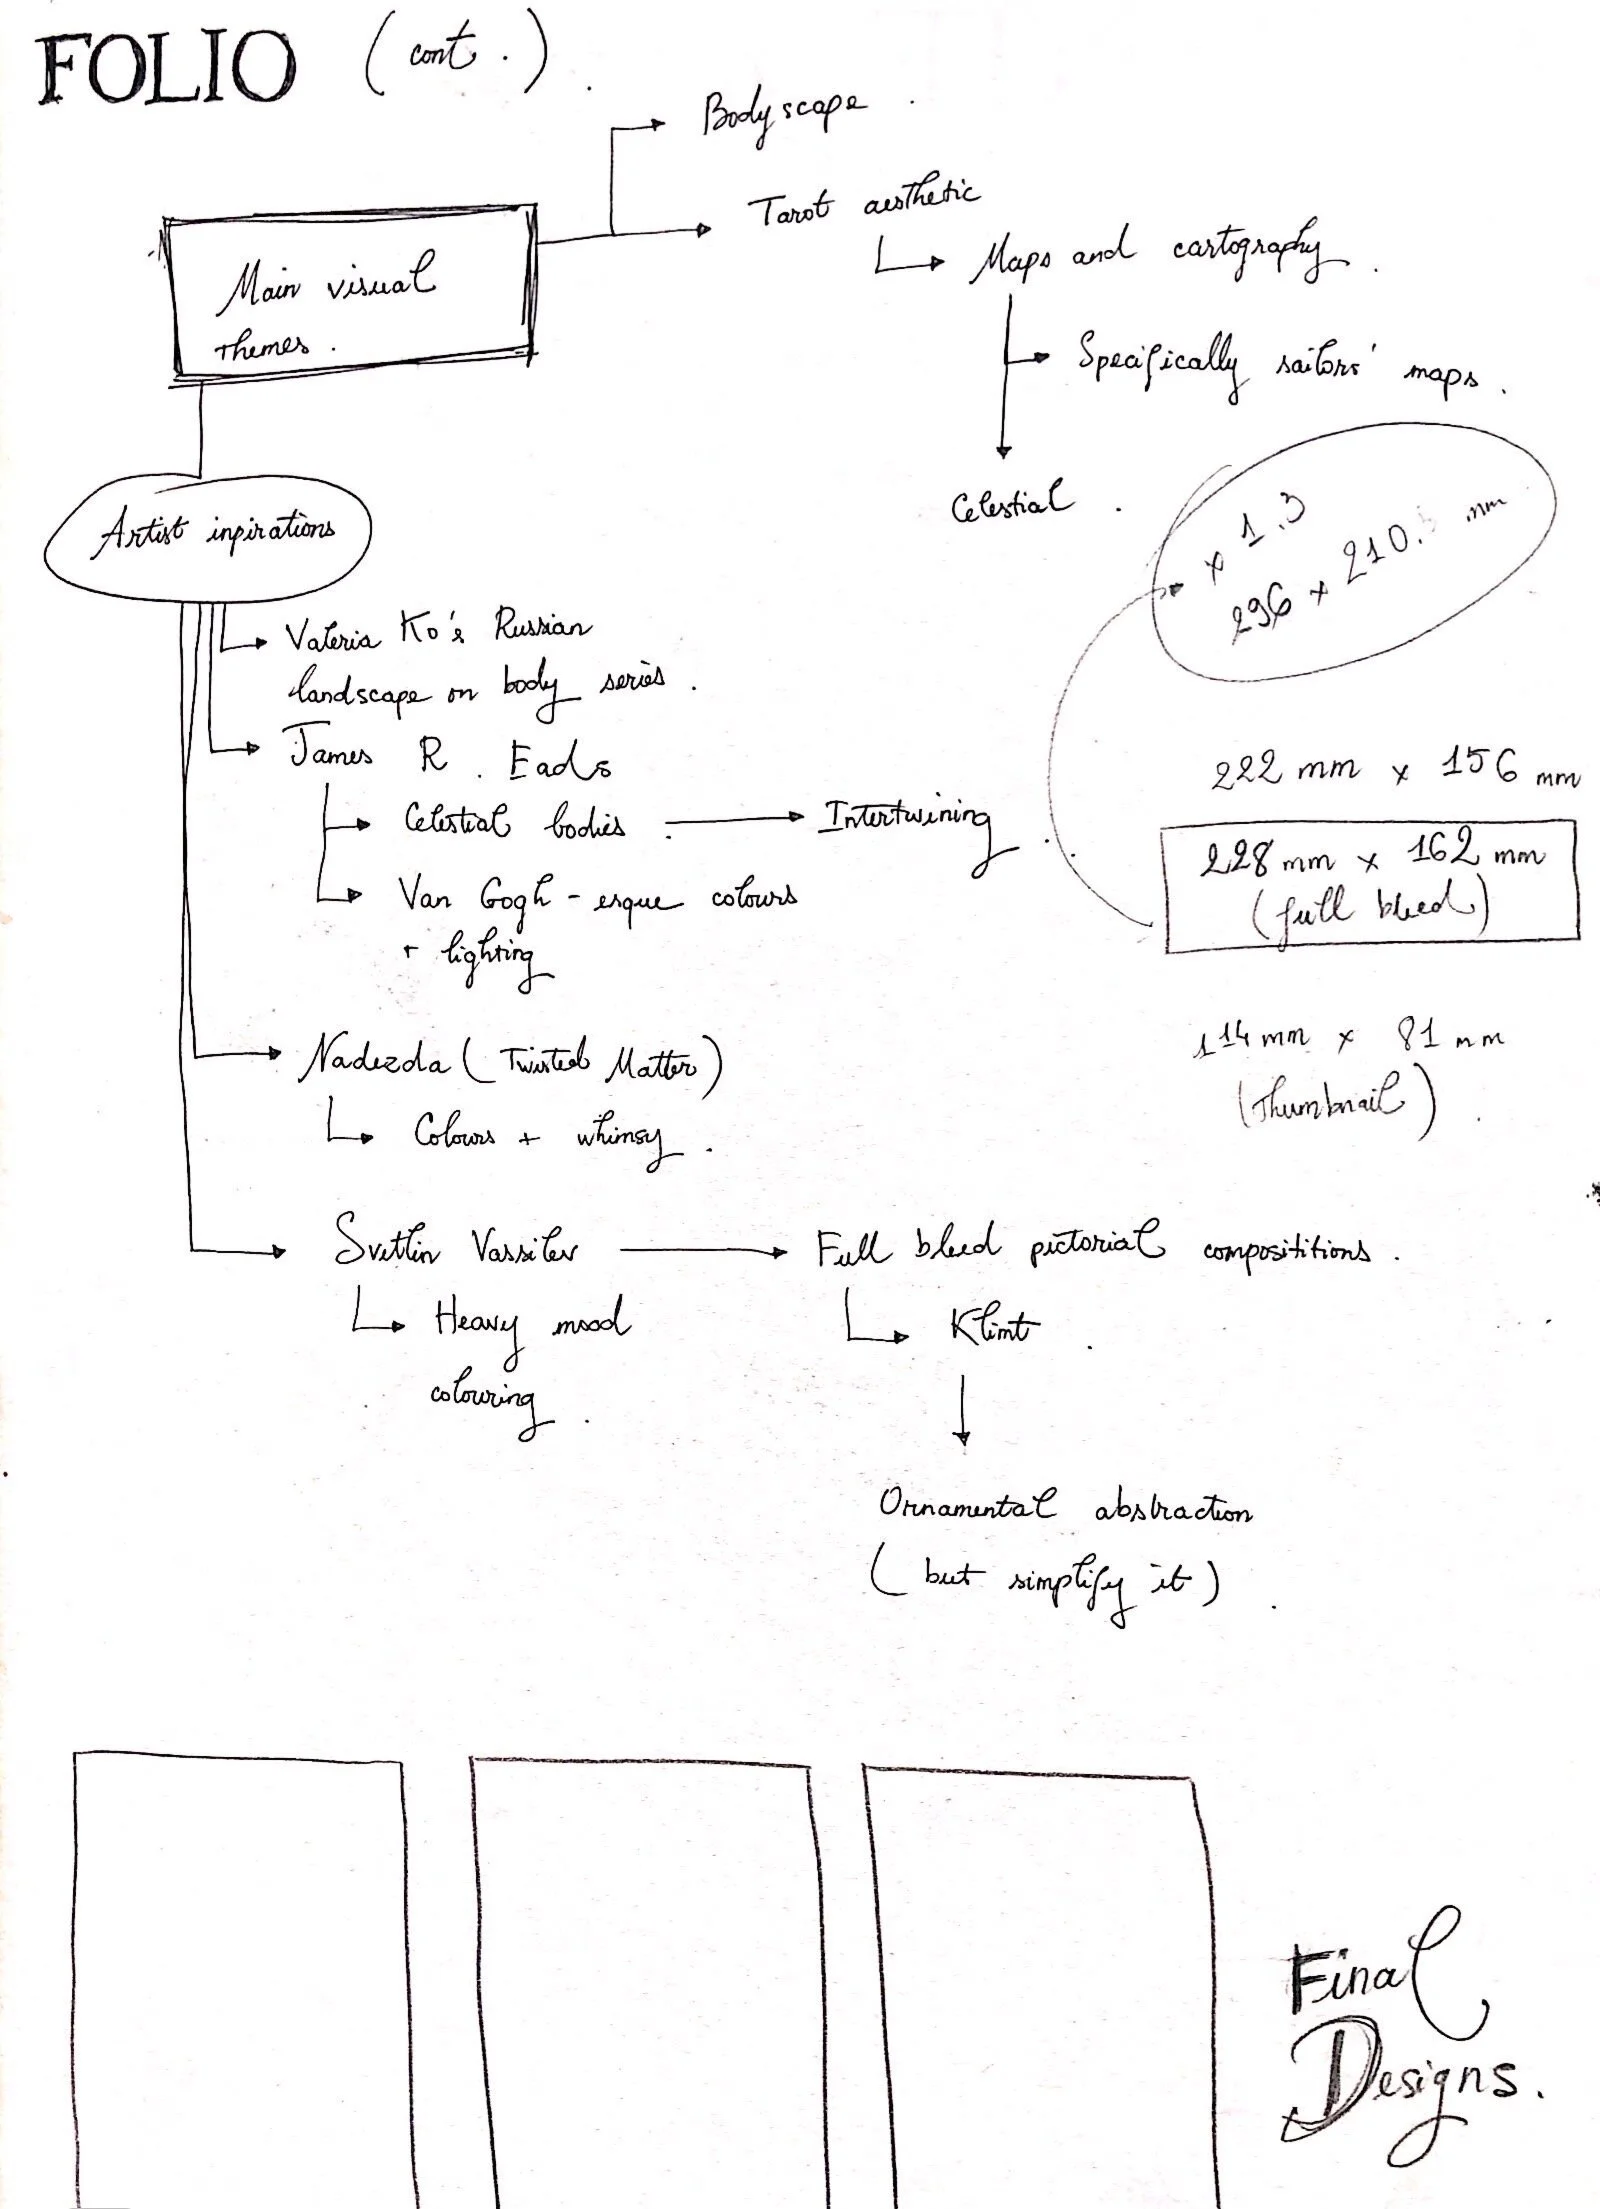 FOLIO (cont.).
Bodyscape.
Tarot aesthetic
Main visual
themes.
Maps and cartography.
Specifically sailors' maps.
Celestial.
Artist inpirations
x 1.3
296 x 210.5 mm
Valeria Ko's Russian
landscape on body series.
James R. Eads
222 mm x 156 mm
Celestial bodies.
Intertwining.
228 mm x 162 mm
(full bleed)
Van Gogh-esque colours
+ lighting
114 mm x 81 mm
(thumbnail).
Nadezda (Twisted Matter)
Colours + whimsy.
Svetlin Vassilev
Full bleed pictorial compositions.
Heavy mood
colouring.
Klimt.
Ornamental abstraction
(but simplify it).
Final
Designs.